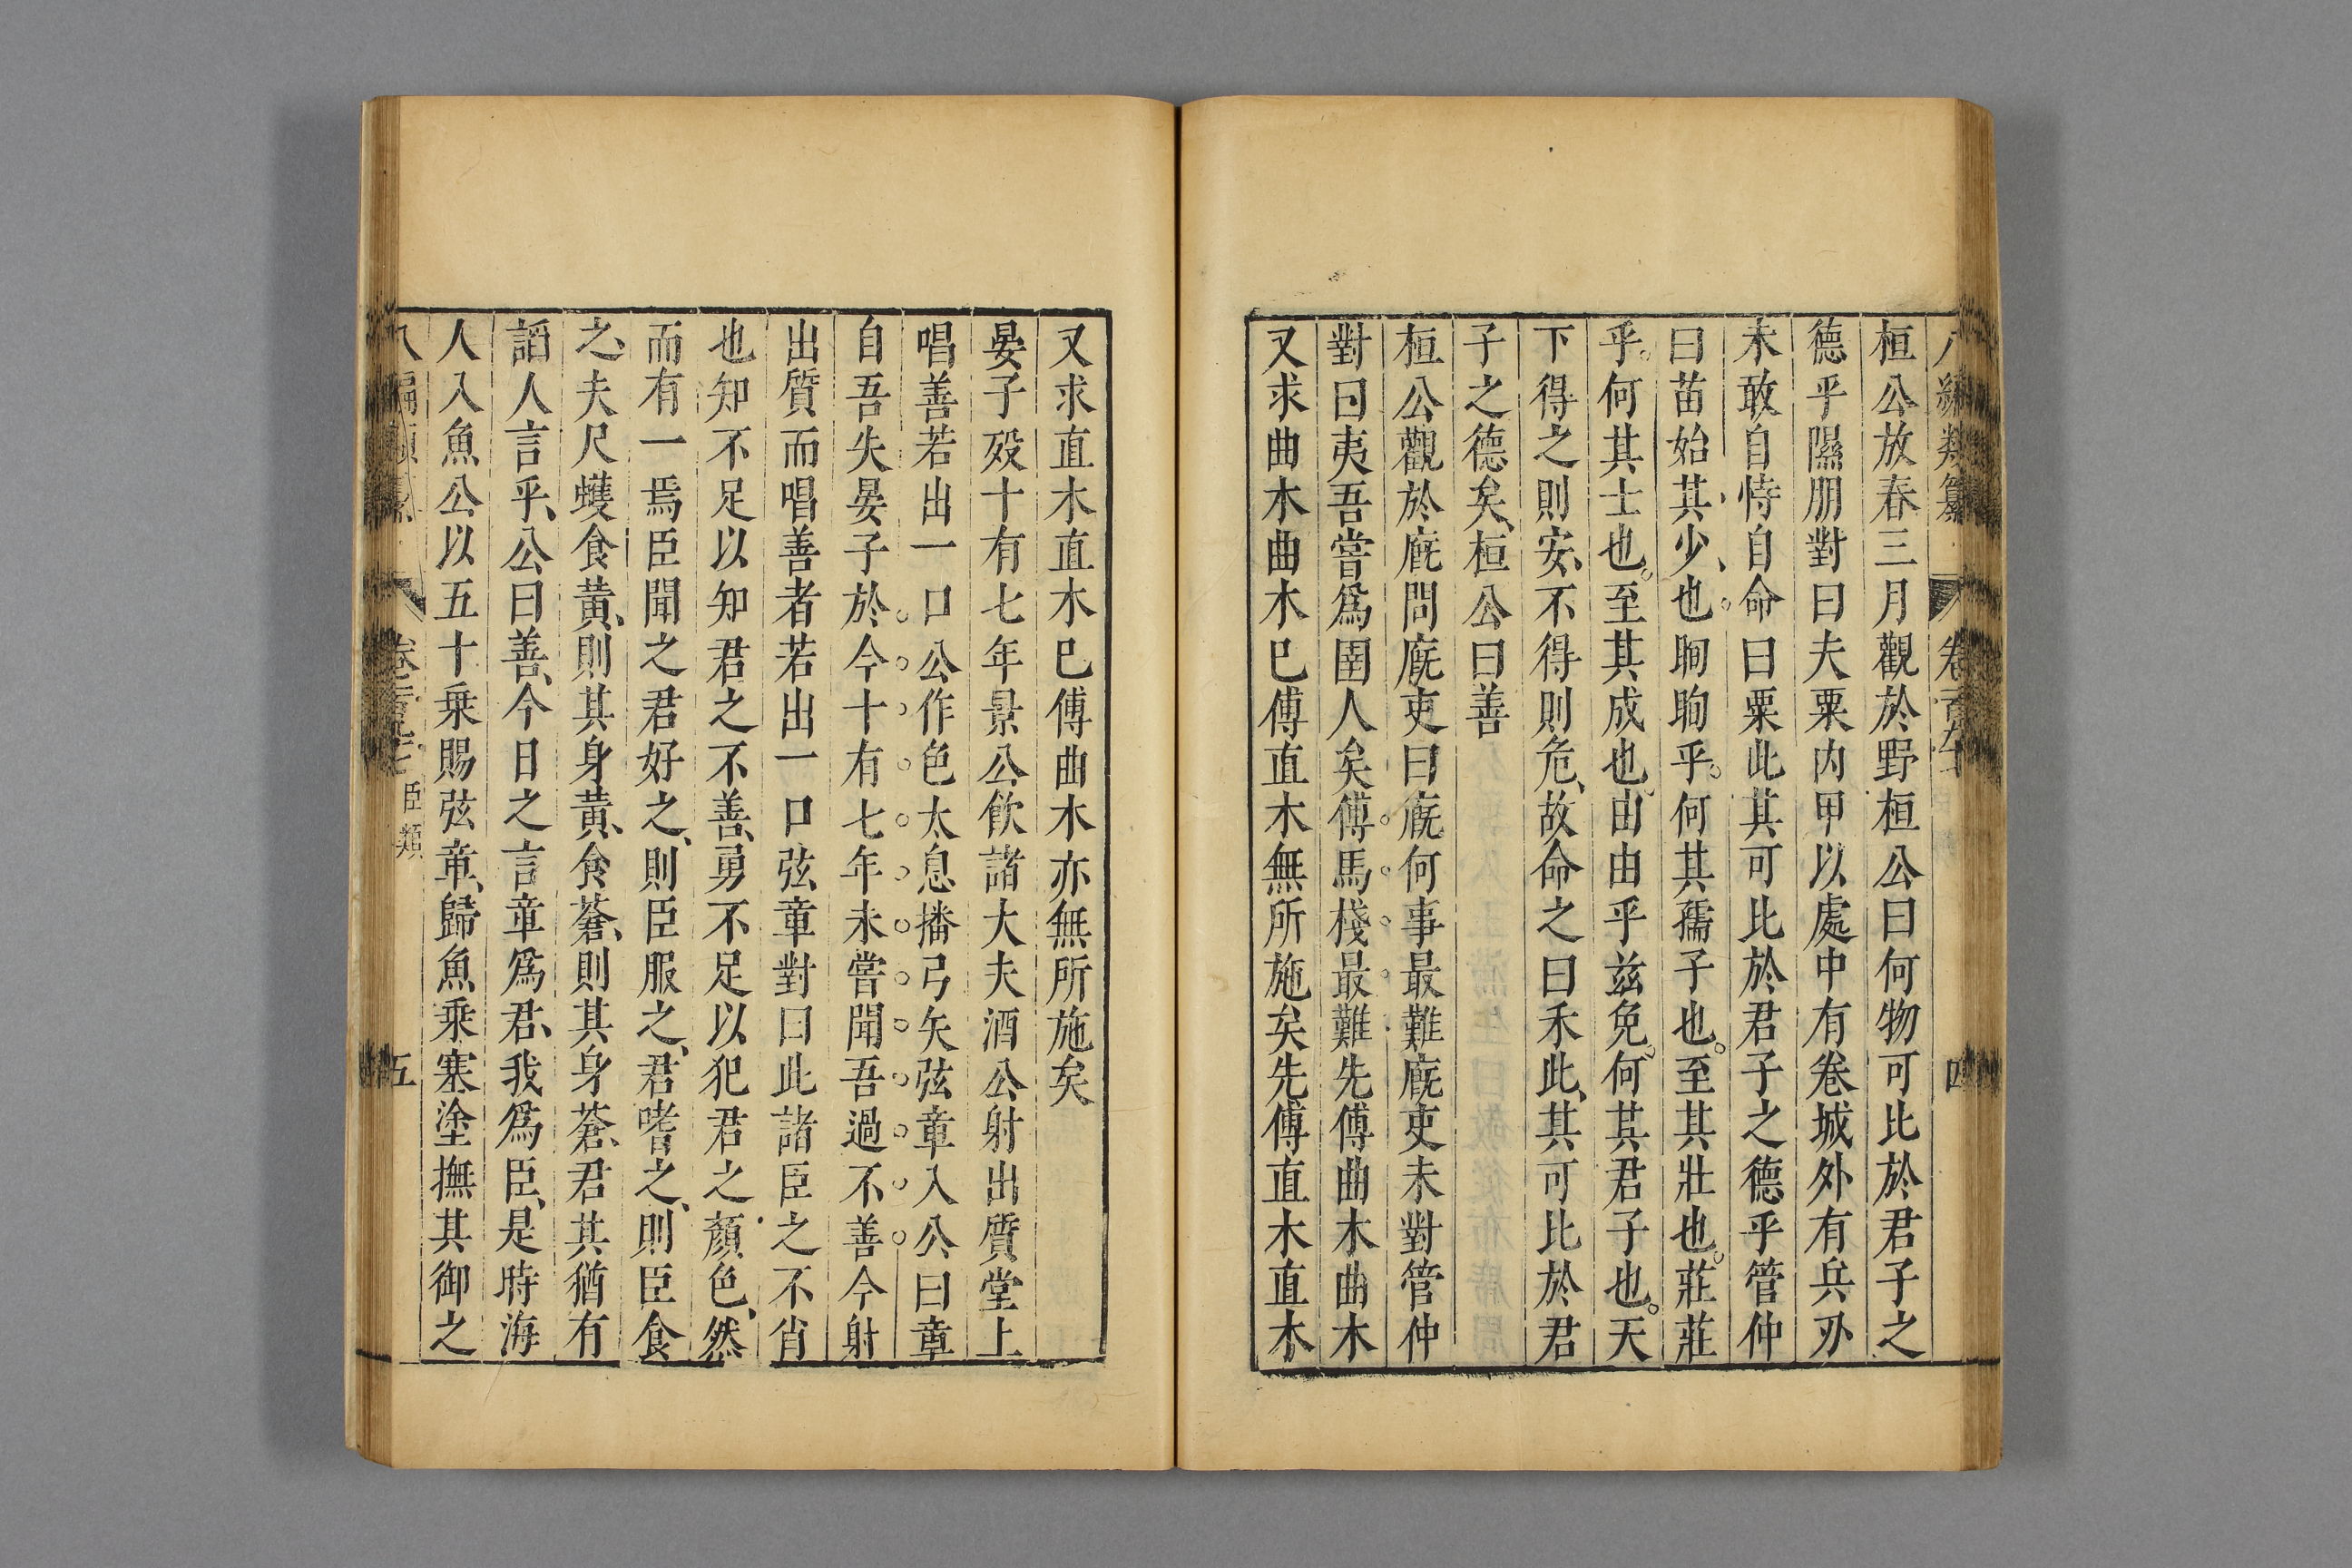 八編類纂 卷 四
桓公放春三月觀於野桓公曰何物可比於君子之
德乎隰朋對曰夫粟內甲以處中有卷城外有兵刃
未敢自恃自命曰粟此其可比於君子之德乎管仲
曰苗始其少也眗眗乎何其孺子也至其壯也莊莊
乎何其士也至其成也由由乎兹免何其君子也天
下得之則安不得則危故命之曰禾此其可比於君
子之德矣桓公曰善
桓公觀於廐問廐吏曰廐何事最難廐吏未對管仲
對曰夷吾嘗爲圉人矣傅馬棧最難先傅曲木曲木
又求曲木曲木已傅直木無所施矣先傅直木直木
又求直木直木已傅曲木亦無所施矣
晏子歿十有七年景公飲諸大夫酒公射出質堂上
唱善若出一口公作色太息播弓矢弦章入公曰章
自吾失晏子於今十有七年未嘗聞吾過不善今射
出質而唱善者若出一口弦章對曰此諸臣之不肖
也知不足以知君之不善勇不足以犯君之顏色然
而有一焉臣聞之君好之則臣服之君嗜之則臣食
之夫尺蠖食黃則其身黃食蒼則其身蒼君其猶有
謟人言乎公曰善今日之言章爲君我爲臣是時海
人入魚公以五十乗賜弦章歸魚乗塞塗撫其御之
八編類纂 卷 臣類 五